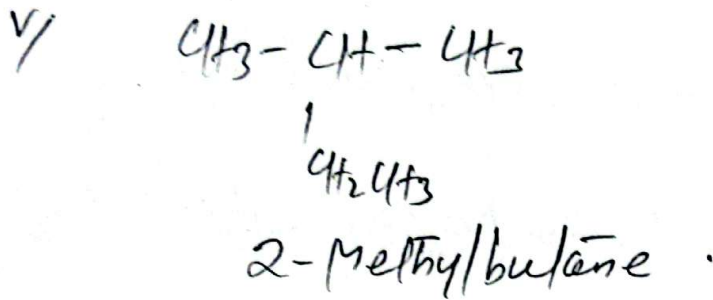 V/ CH3 - CH - CH3
|
CH2CH3
2-Methylbutane.